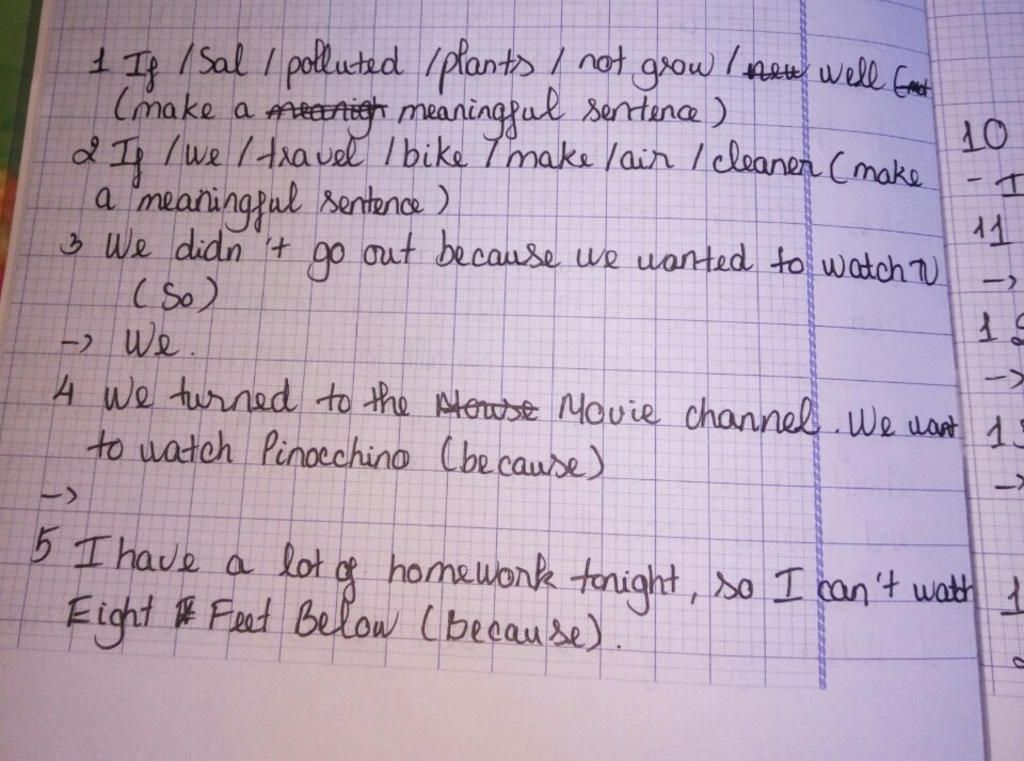 1 If / Sal / polluted / plants / not grow / new well
(make a meaningful sentence)
2 If / we / travel / bike / make / air / cleaner (make
a meaningful sentence)
3 We didn't go out because we wanted to watch TV
(So)
-> We.
4 We turned to the Movie channel. We want
to watch Pinocchino (because)
->
5 I have a lot of homework tonight, so I can't watch
Eight Feet Below (because).
10
- I
11
->
1
->
1
->
1